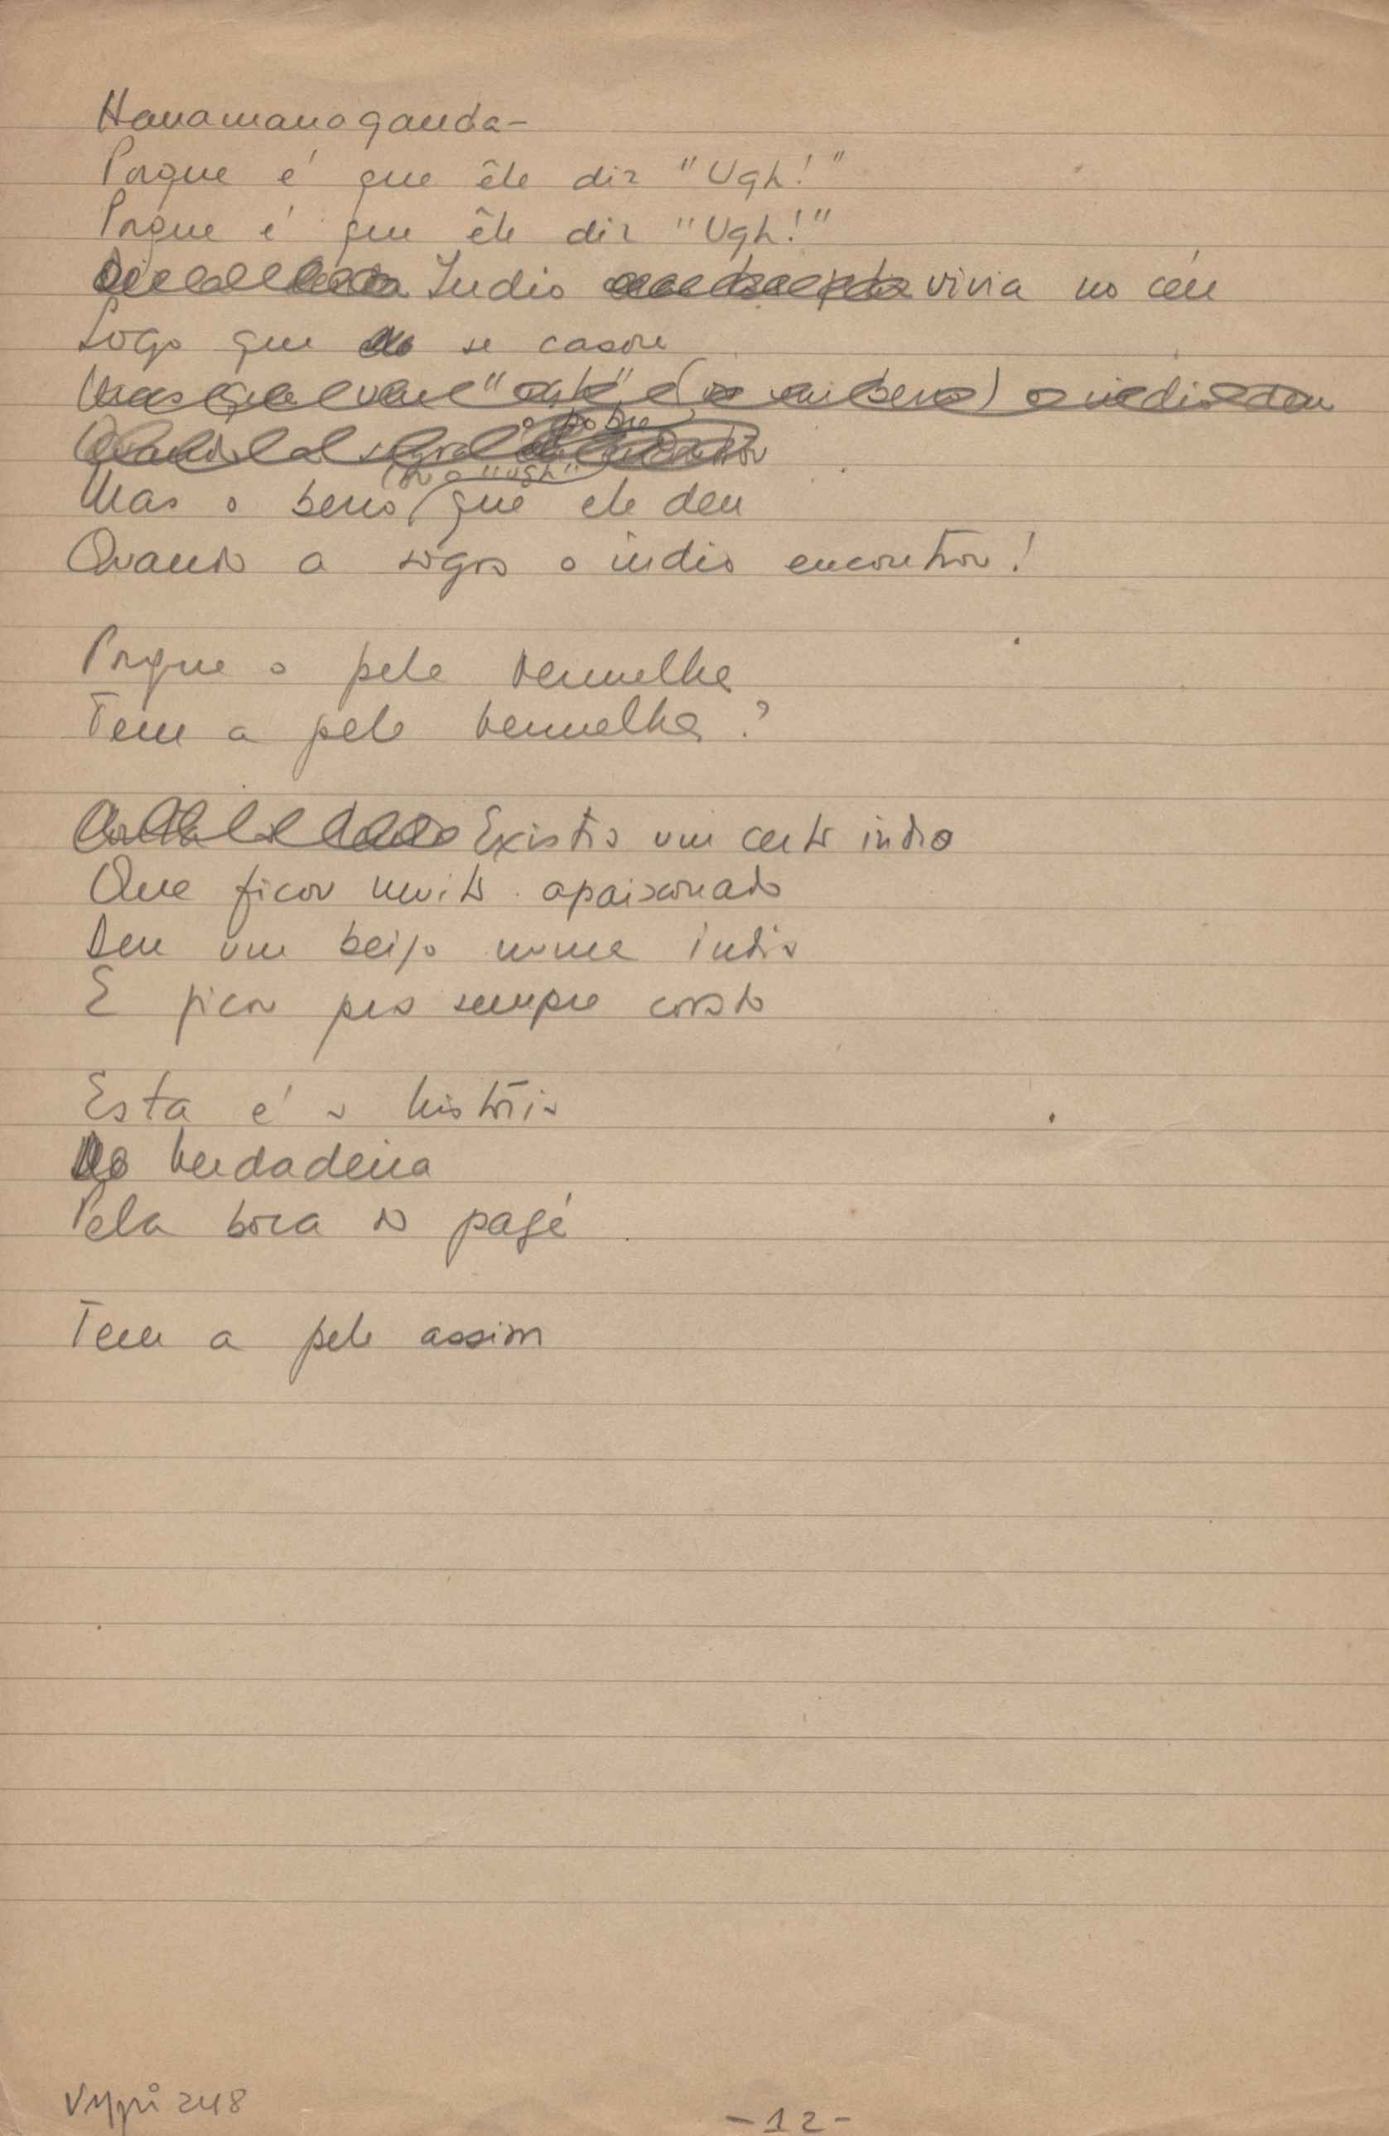 Hanamanaganda-
Porque é que êle diz "Ugh!"
Porque é que êle diz "Ugh!"
Indio vivia no céu
Logo que se casou
o pobre
(ou o "ugh")
Mas o berro que ele deu
Quando a sogra o indio encontrou!
Porque o pele vermelha
Tem a pele vermelha?
Existia um certo indio
Que ficou muito apaixonado
Deu um beijo numa india
E ficou pra sempre corado
Esta é a história
Verdadeira
Pela boca do pagé
Tem a pele assim
VMpi 248
-12-